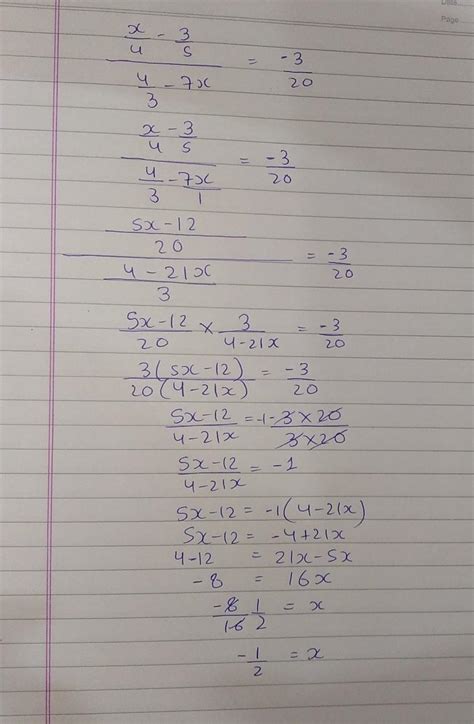 Date
Page
x/4 - 3/5
———— = -3/20
4/3 - 7x
x/4 - 3/5
———— = -3/20
4/3 - 7x/1
5x-12
20
———— = -3/20
4-21x
3
5x-12/20 × 3/4-21x = -3/20
3(5x-12)/20(4-21x) = -3/20
5x-12/4-21x = -1 -3×20/3×20
5x-12/4-21x = -1
5x-12 = -1(4-21x)
5x-12 = -4+21x
4-12 = 21x-5x
-8 = 16x
-8 1/16 2 = x
-1/2 = x